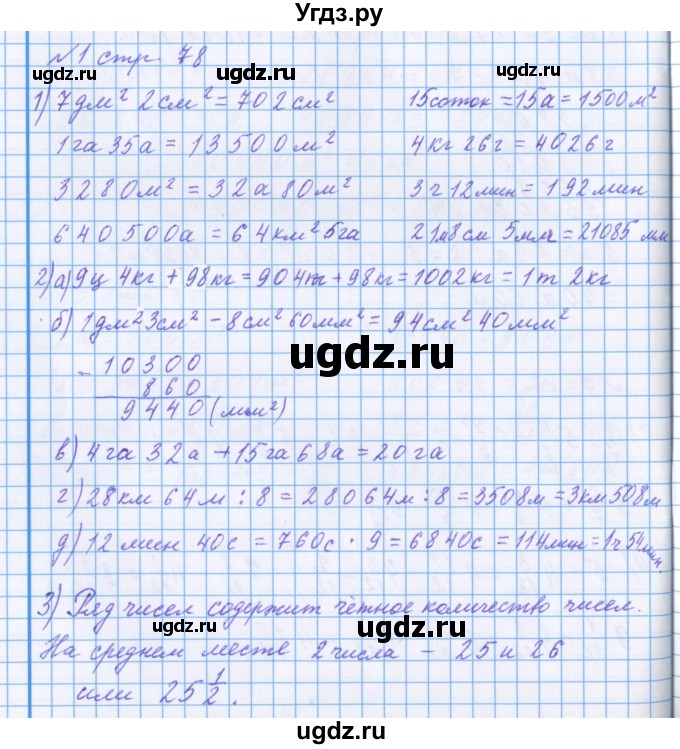 Угдз.ру
№1 стр. 78
ugdz.ru ugdz.ru
1) 7дм² 2см² = 702см² 15соток = 15а = 1500м²
1га 35а = 13500м² 4кг 26г = 4026г
3280м² = 32а 80м² 3ч 12мин = 192мин
640500а = 64км² 5га 21м 8см 5мм = 21085мм
ugdz.ru ugdz.ru
2) а) 9ц 4кг + 98кг = 904кг + 98кг = 1002кг = 1т 2кг
б) 1дм² 3см² - 8см² 60мм² = 94см² 40мм²
ugdz.ru
- 10300
860
9440 (мм²)
в) 4га 32а + 15га 68а = 20га
г) 28км 64м : 8 = 28064м : 8 = 3508м = 3км 508м
ugdz.ru ugdz.ru
д) 12мин 40с = 760с · 9 = 6840с = 114мин = 1ч 54мин.
3) Ряд чисел содержит чётное количество чисел.
ugdz.ru ugdz.ru
На среднем месте 2 числа - 25 и 26
или 25 1/2.
ugdz.ru ugdz.ru